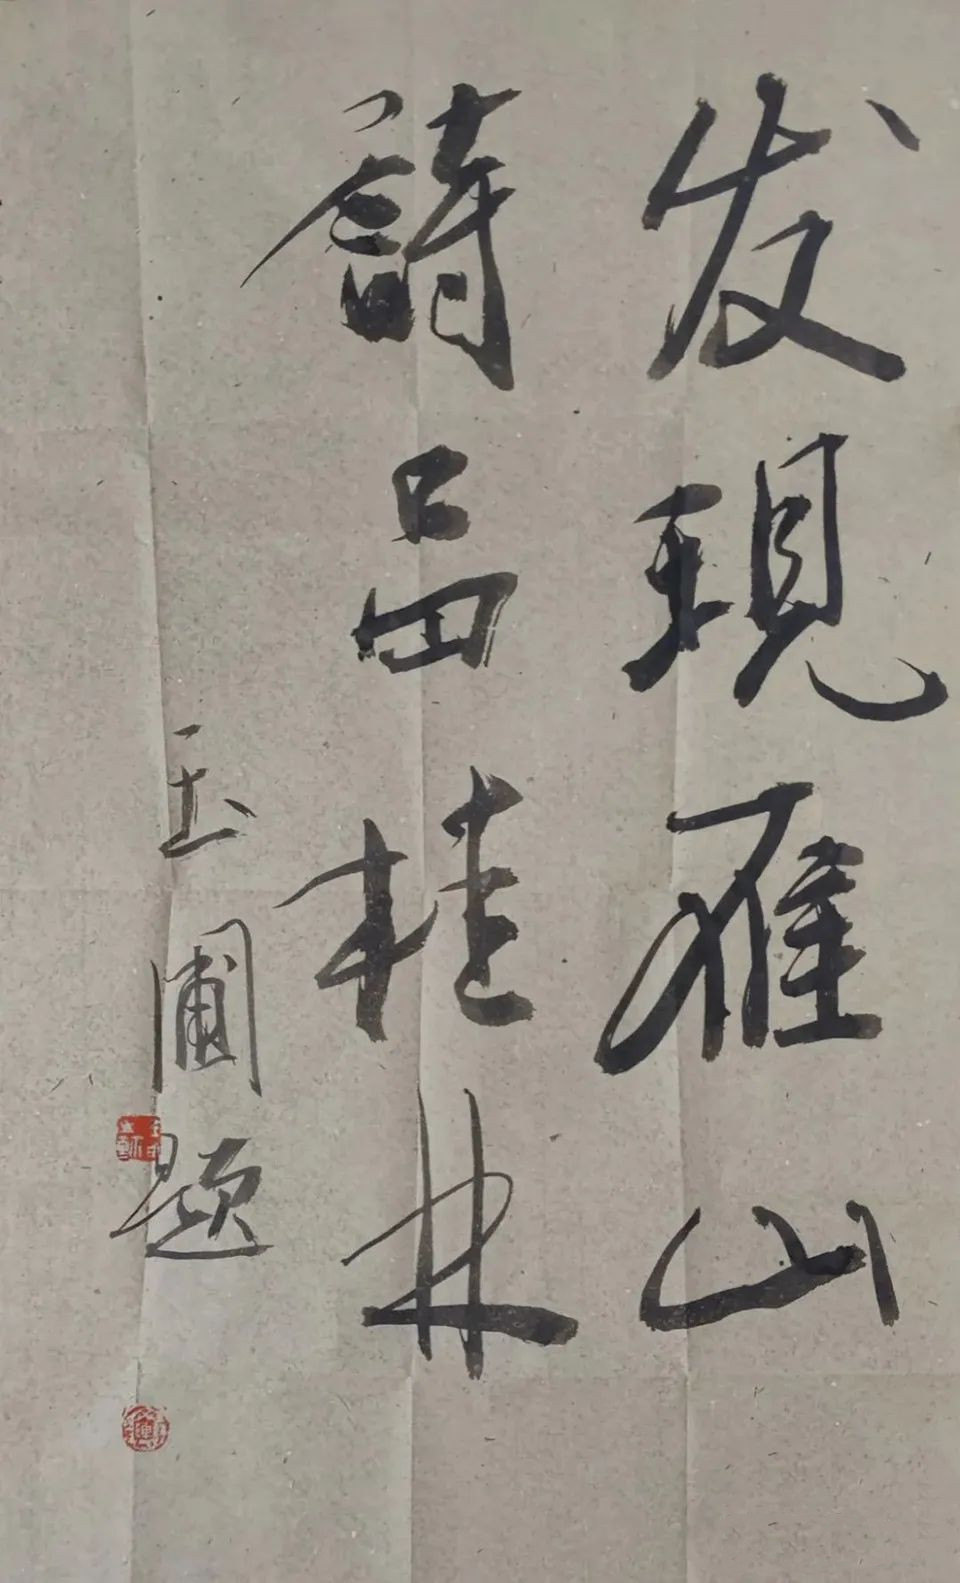 发現雁山
詩品桂林
玉圃题